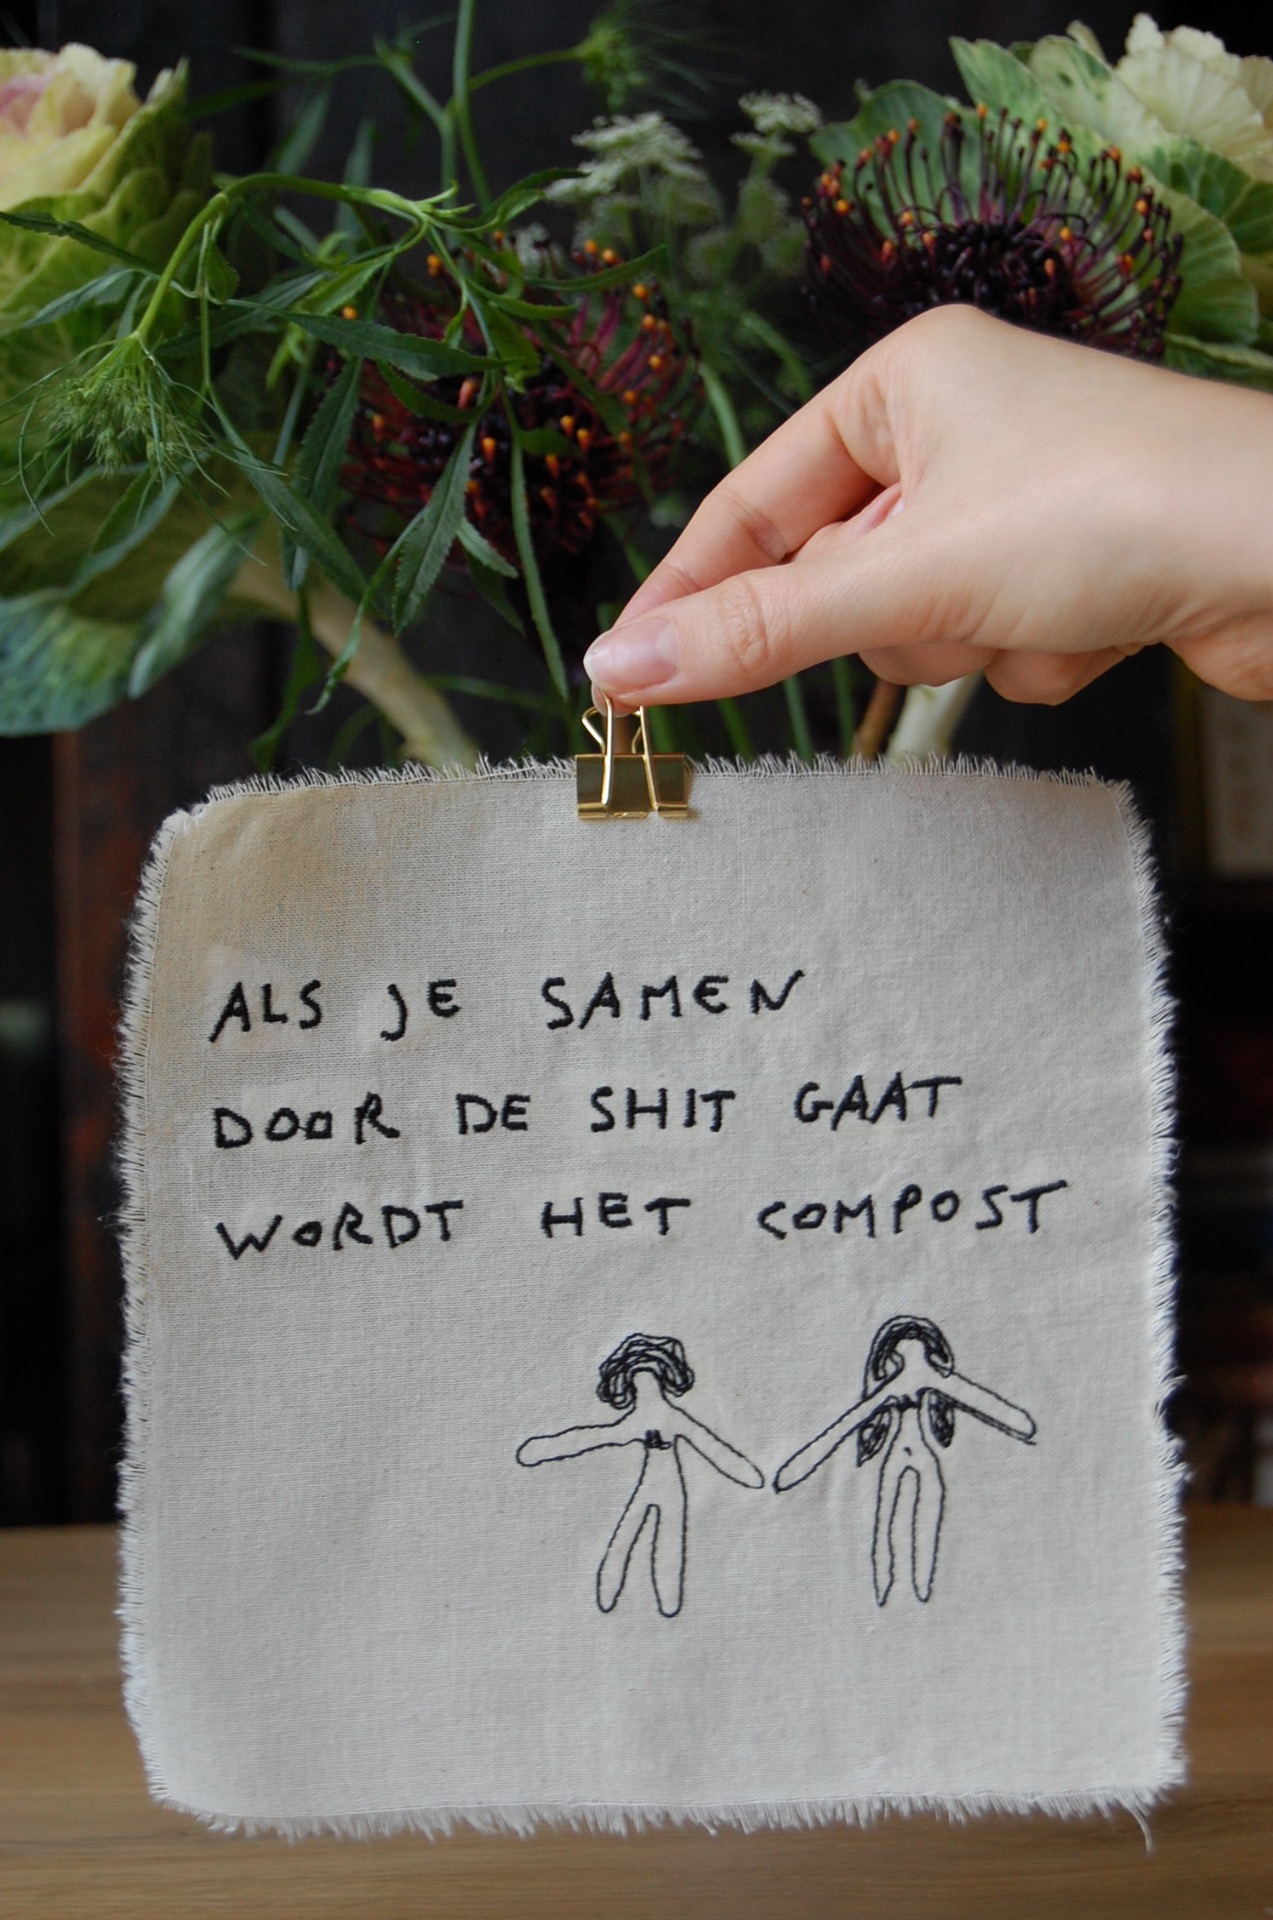 ALS JE SAMEN
DOOR DE SHIT GAAT
WORDT HET COMPOST